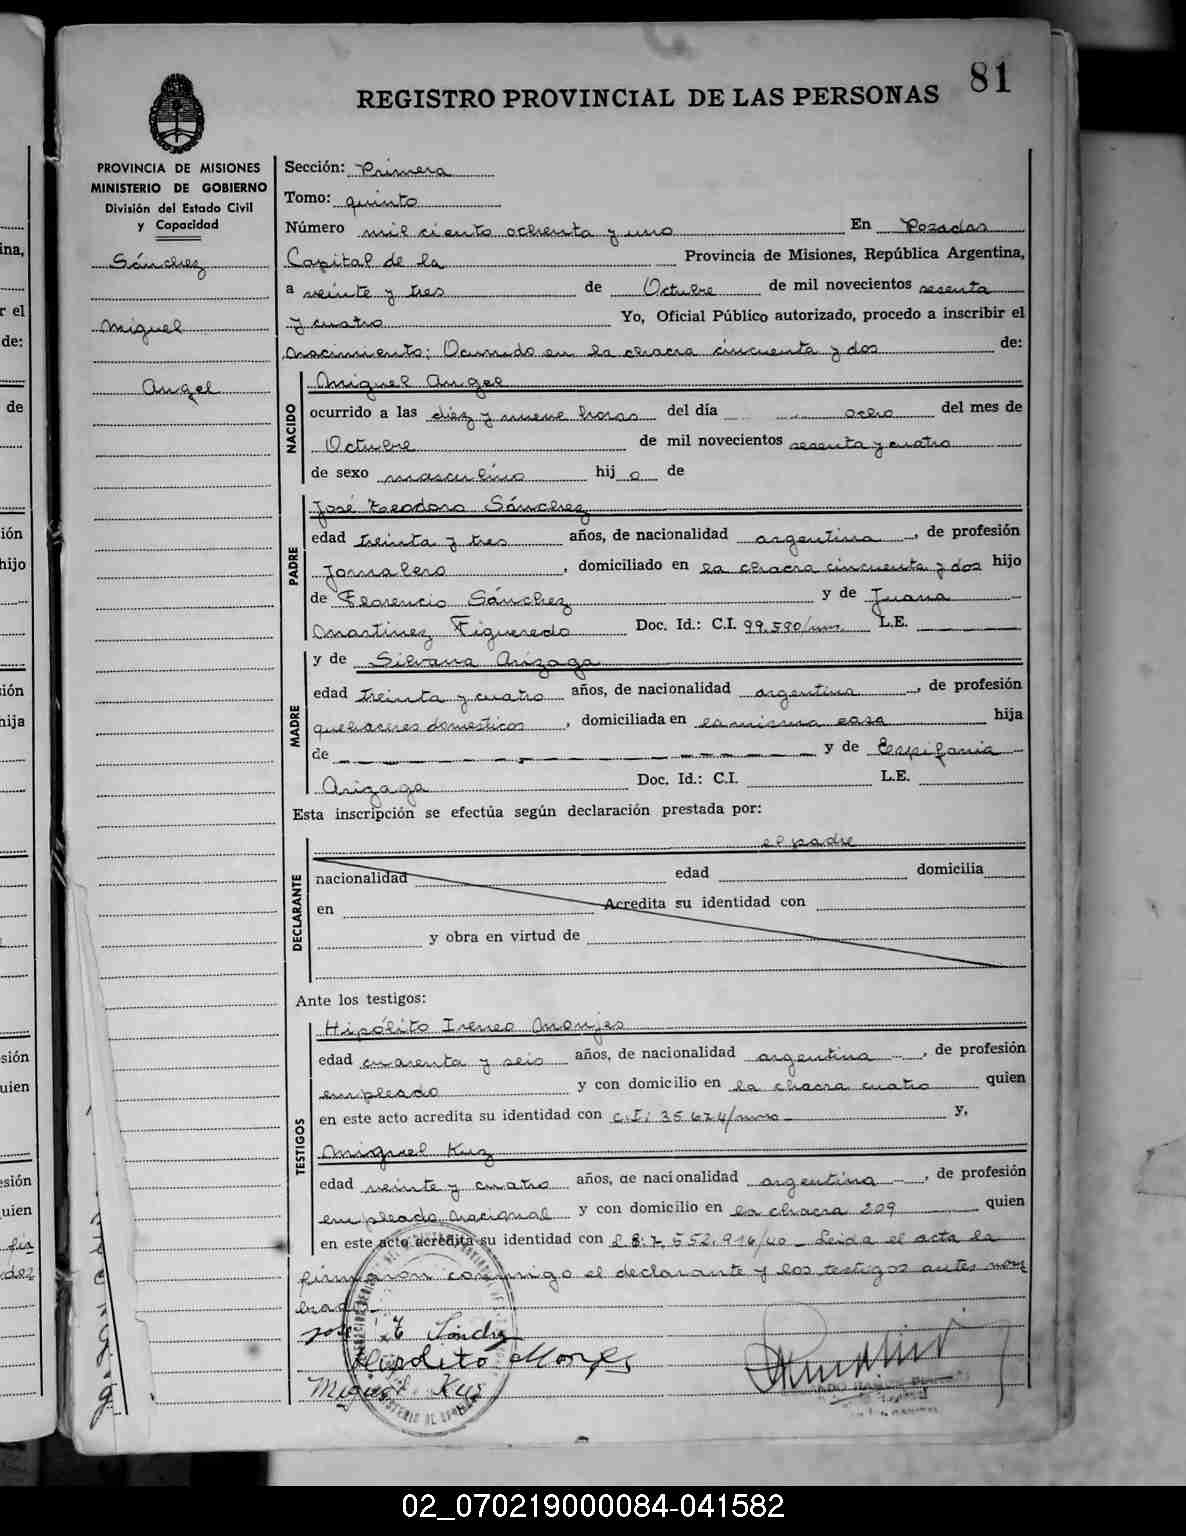 81
REGISTRO PROVINCIAL DE LAS PERSONAS
PROVINCIA DE MISIONES
MINISTERIO DE GOBIERNO
División del Estado Civil
y Capacidad
Sánchez
Miguel
Angel
Sección: Primera
Tomo: quinto
Número mil ciento ochenta y uno En Posadas
Capital de la Provincia de Misiones, República Argentina,
a veinte y tres de Octubre de mil novecientos sesenta
y cuatro Yo, Oficial Público autorizado, procedo a inscribir el
nacimiento: Ocurrido en la chacra cincuenta y dos de:
NACIDO
Miguel Angel
ocurrido a las diéz y nueve horas del día ocho del mes de
Octubre de mil novecientos sesenta y cuatro
de sexo masculino hij o de
PADRE
José Teodoro Sánchez
edad treinta y tres años, de nacionalidad argentina, de profesión
Jornalero, domiciliado en la chacra cincuenta y dos hijo
de Florencio Sánchez y de Juana
Martinez Figueredo Doc. Id.: C.I. 99.590/mnes L.E.
MADRE
y de Silvana Arizaga
edad treinta y cuatro años, de nacionalidad argentina, de profesión
quehaceres domesticos, domiciliada en la misma casa hija
de y de Espifania
Arizaga Doc. Id.: C.I. L.E.
Esta inscripción se efectúa según declaración prestada por:
DECLARANTE
el padre
nacionalidad edad domicilia
en Acredita su identidad con
y obra en virtud de
Ante los testigos:
TESTIGOS
Hipólito Ireneo Monjes
edad cuarenta y seis años, de nacionalidad argentina, de profesión
empleado y con domicilio en la chacra cuatro quien
en este acto acredita su identidad con C.I: 35.674/mnes y,
Miguel Kuz
edad veinte y cuatro años, de nacionalidad argentina, de profesión
empleado nacional y con domicilio en la chacra 209 quien
en este acto acredita su identidad con L.E: 7.552.916/40 - Leida el acta la
firmaron conmigo el declarante y los testigos antes nom
brados.
José T Sánchez
Hipolito Monjes
Miguel Kus
02_070219000084-041582